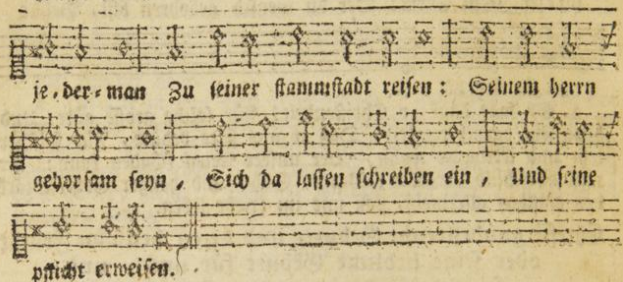 je-der-man Zu seiner stammstadt reisen: Seinem herrn
gehorsam seyn, Sich da lassen schreiben ein, Und seine
pflicht erweisen.